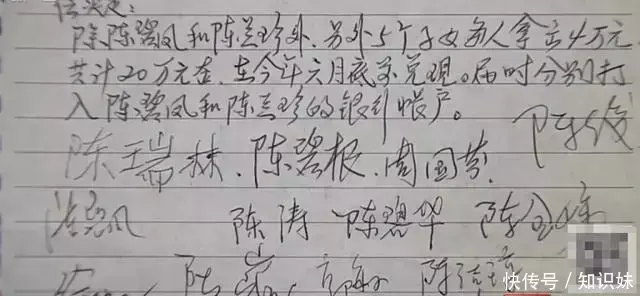 决定：
除陈碧凤和陈兰珍外，另外5个子女每人拿出4万元
共计20万元在，在今年六月底前兑现。届时分别打
入陈碧凤和陈兰珍的银行帐户。
陈瑞林、陈碧根、周国芬、陈俊
陈碧凤 陈涛 陈碧华 陈金
陈
快传号／知识妹